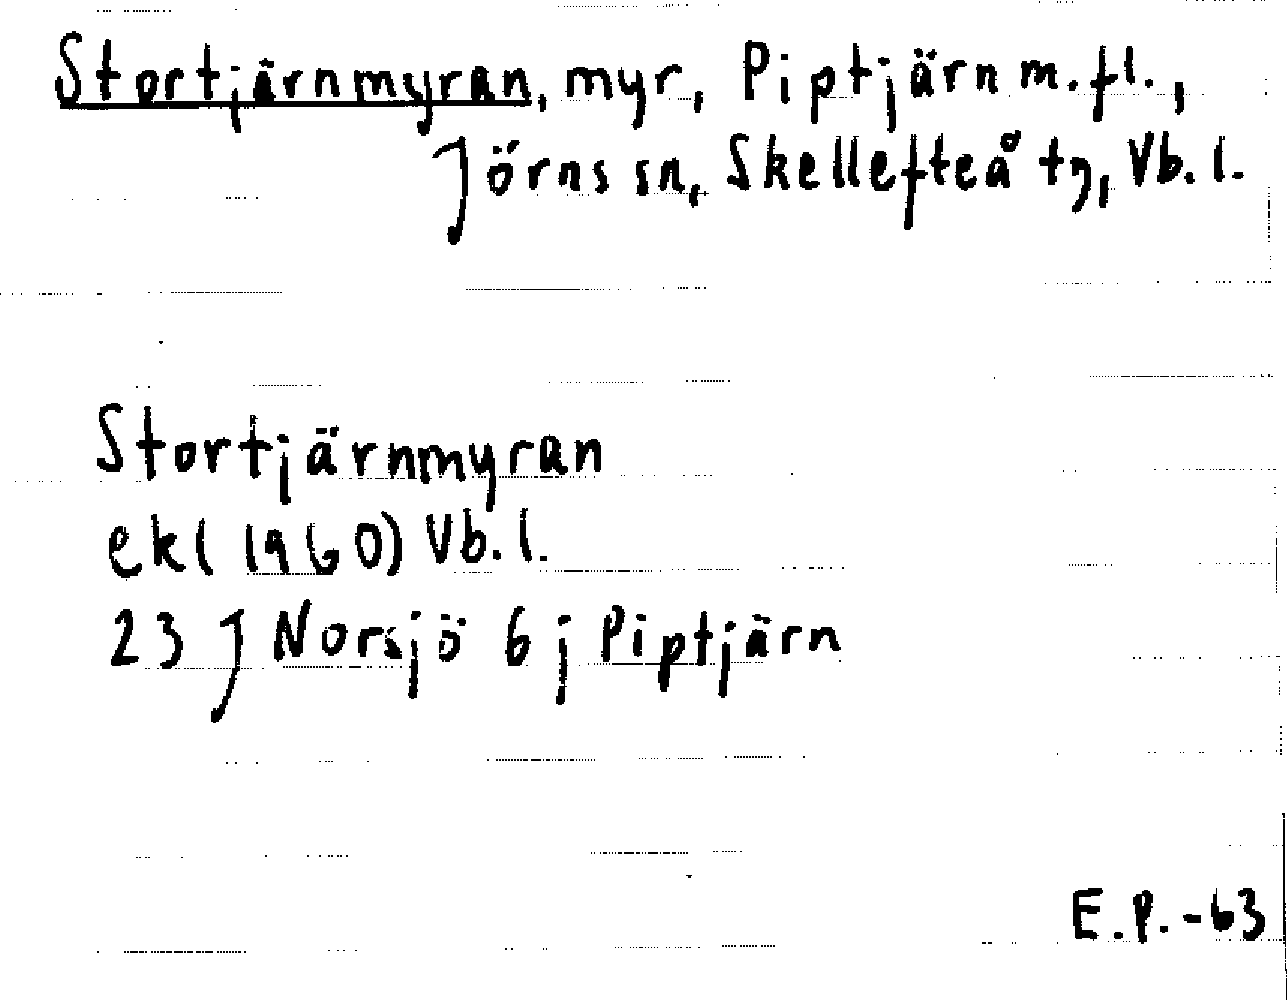 Stortjärnmyran, myr, Piptjärn m.fl.,
Jörns sn, Skellefteå tg, Vb. l.
Stortjärnmyran
ekl 1960) Vb. l.
23 J Norsjö 6 j Piptjärn
E.P.-63